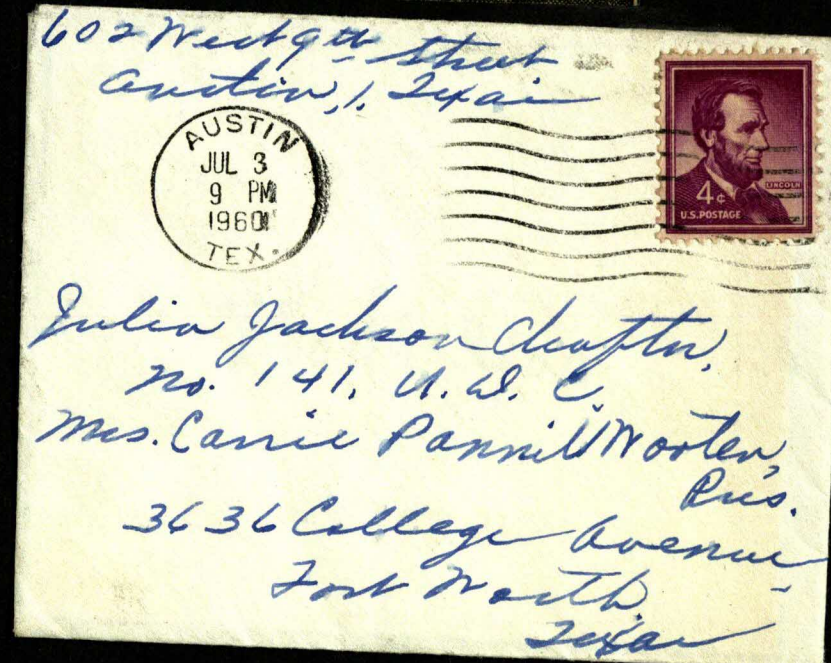 602 West 9th Street
Austin, 1, Texas
AUSTIN
JUL 3
9 PM
1960
TEX.
LINCOLN
4¢
U.S. POSTAGE
Julia Jackson Chapter,
No. 141, U. D. C.
Mrs. Carrie Pannill Wooten,
Pres.
3636 College Avenue
Fort Worth,
Texas